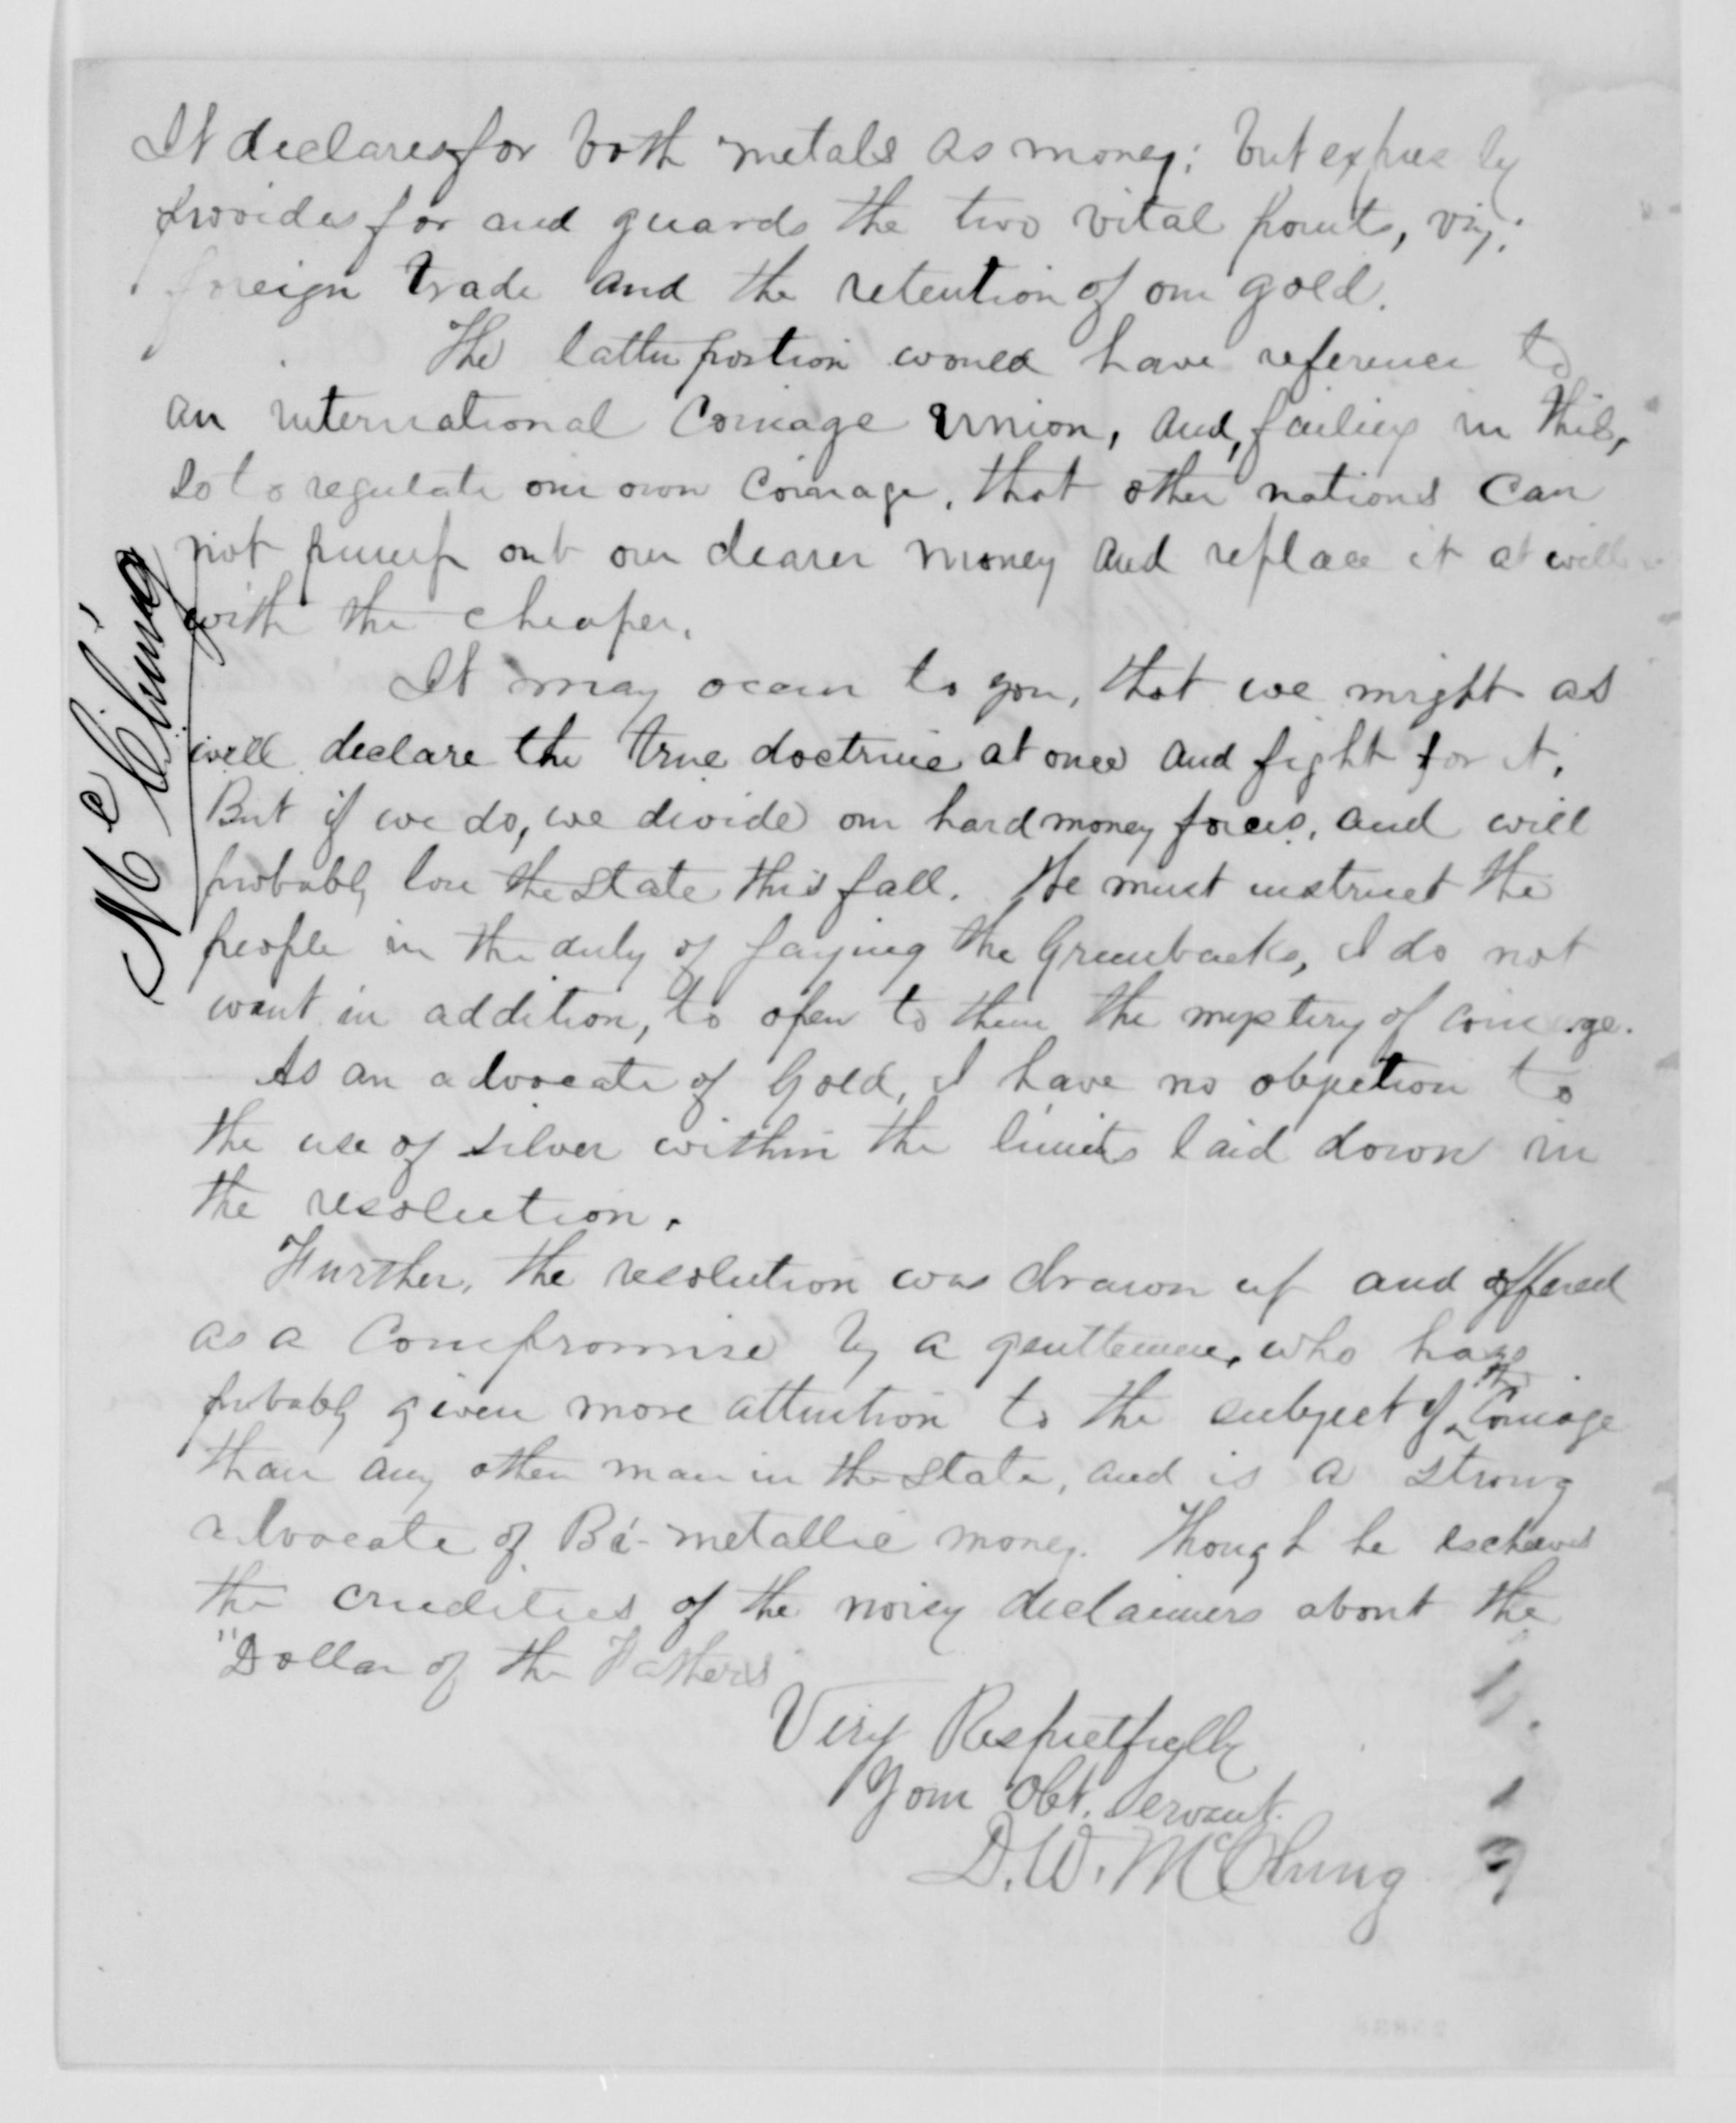 It declares for both metals as money; but expressly
provides for and guards the two vital points, viz;
foreign trade and the retention of our gold.
The latter portion would have reference to
an international Coinage Union, and, failing in this,
so to regulate our own Coinage, that other nations can
not pump out our dearer money and replace it at will
with the cheaper.
It may occur to you, that we might as
well declare the true doctrine at once and fight for it.
But if we do, we divide our hard money forces, and will
probably lose the State this fall. We must instruct the
people in the duty of paying the Greenbacks, I do not
want in addition, to open to them the mystery of coinage.
As an advocate of Gold, I have no objection to
the use of silver within the limits laid down in
the resolution.
Further, the resolution was drawn up and offered
as a Compromise by a gentleman, who has
probably given more attention to the subject of the Coinage
than any other man in the State, and is a strong
advocate of Bi-metallic money. Though he eschews
the crudities of the noisy declaimers about the
"Dollar of the Fathers"
Very Respectfully
Your Obt. Servant.
D. W. McClung
McClung